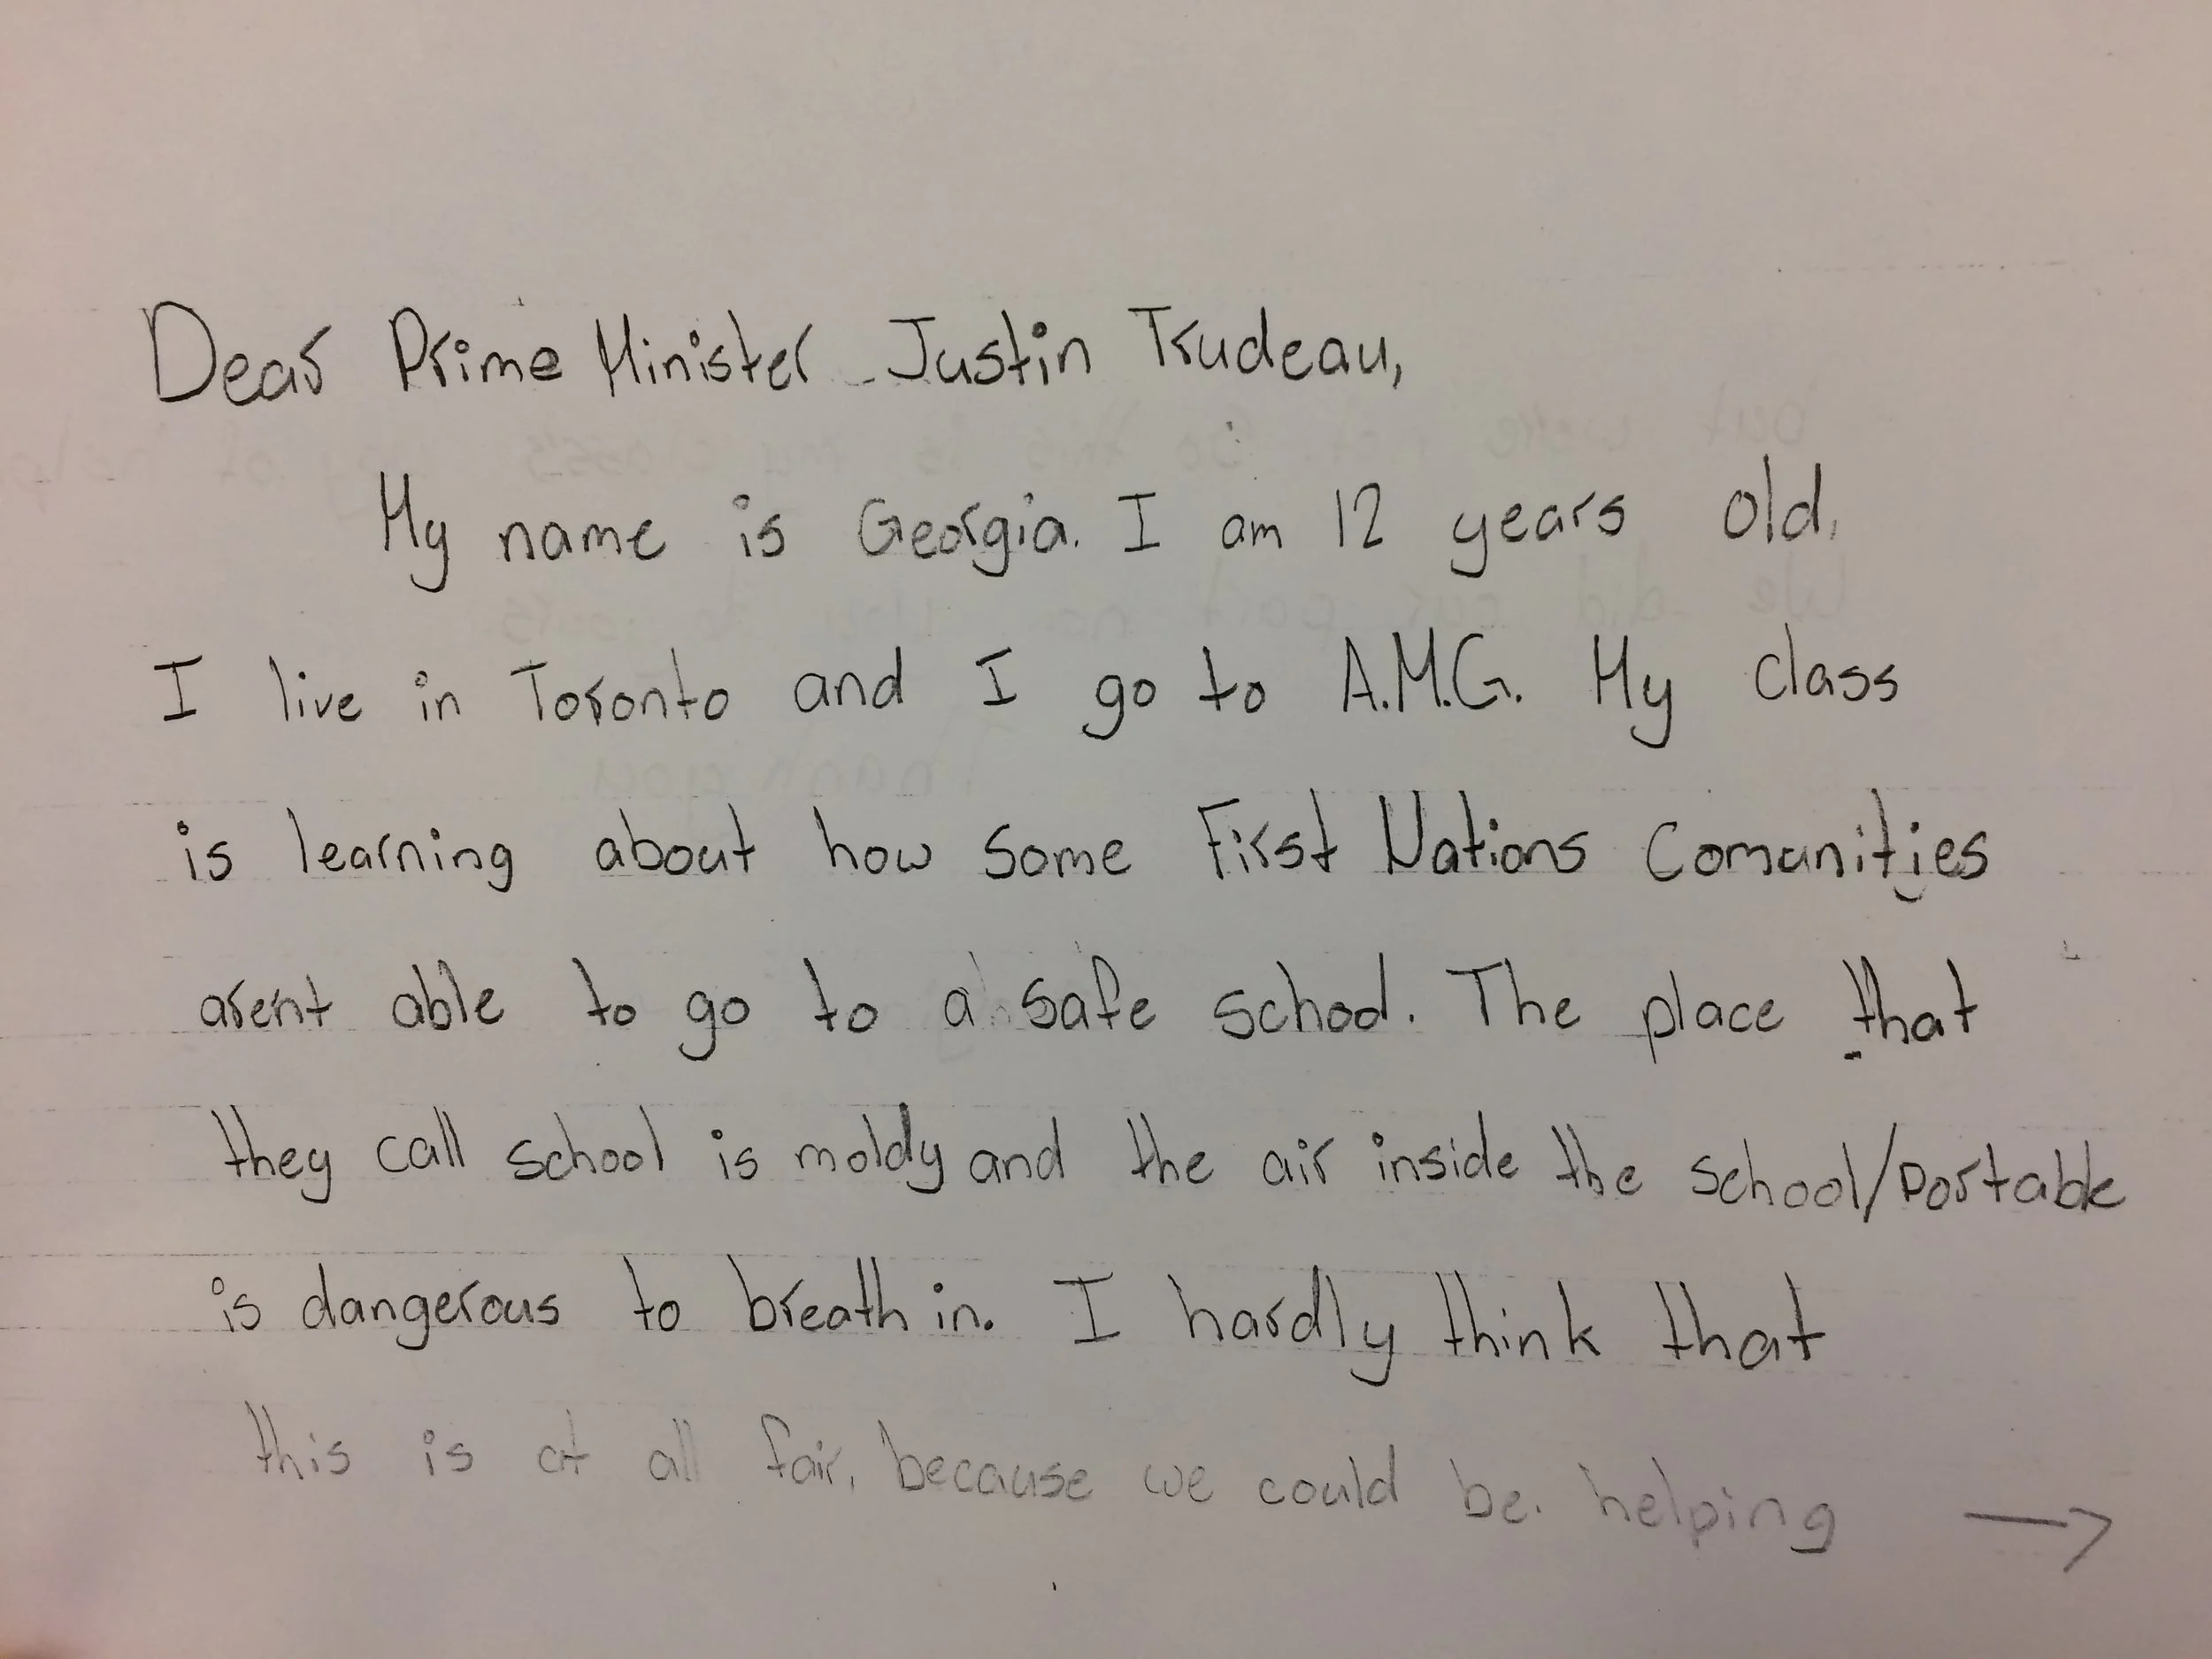 Dear Prime Minister Justin Trudeau,
My name is Georgia. I am 12 years old.
I live in Toronto and I go to A.M.G. My class
is learning about how some First Nations Comunities
arent able to go to a safe school. The place that
they call school is moldy and the air inside the school/portable
is dangerous to breath in. I hardly think that
this is at all fair, because we could be. helping →